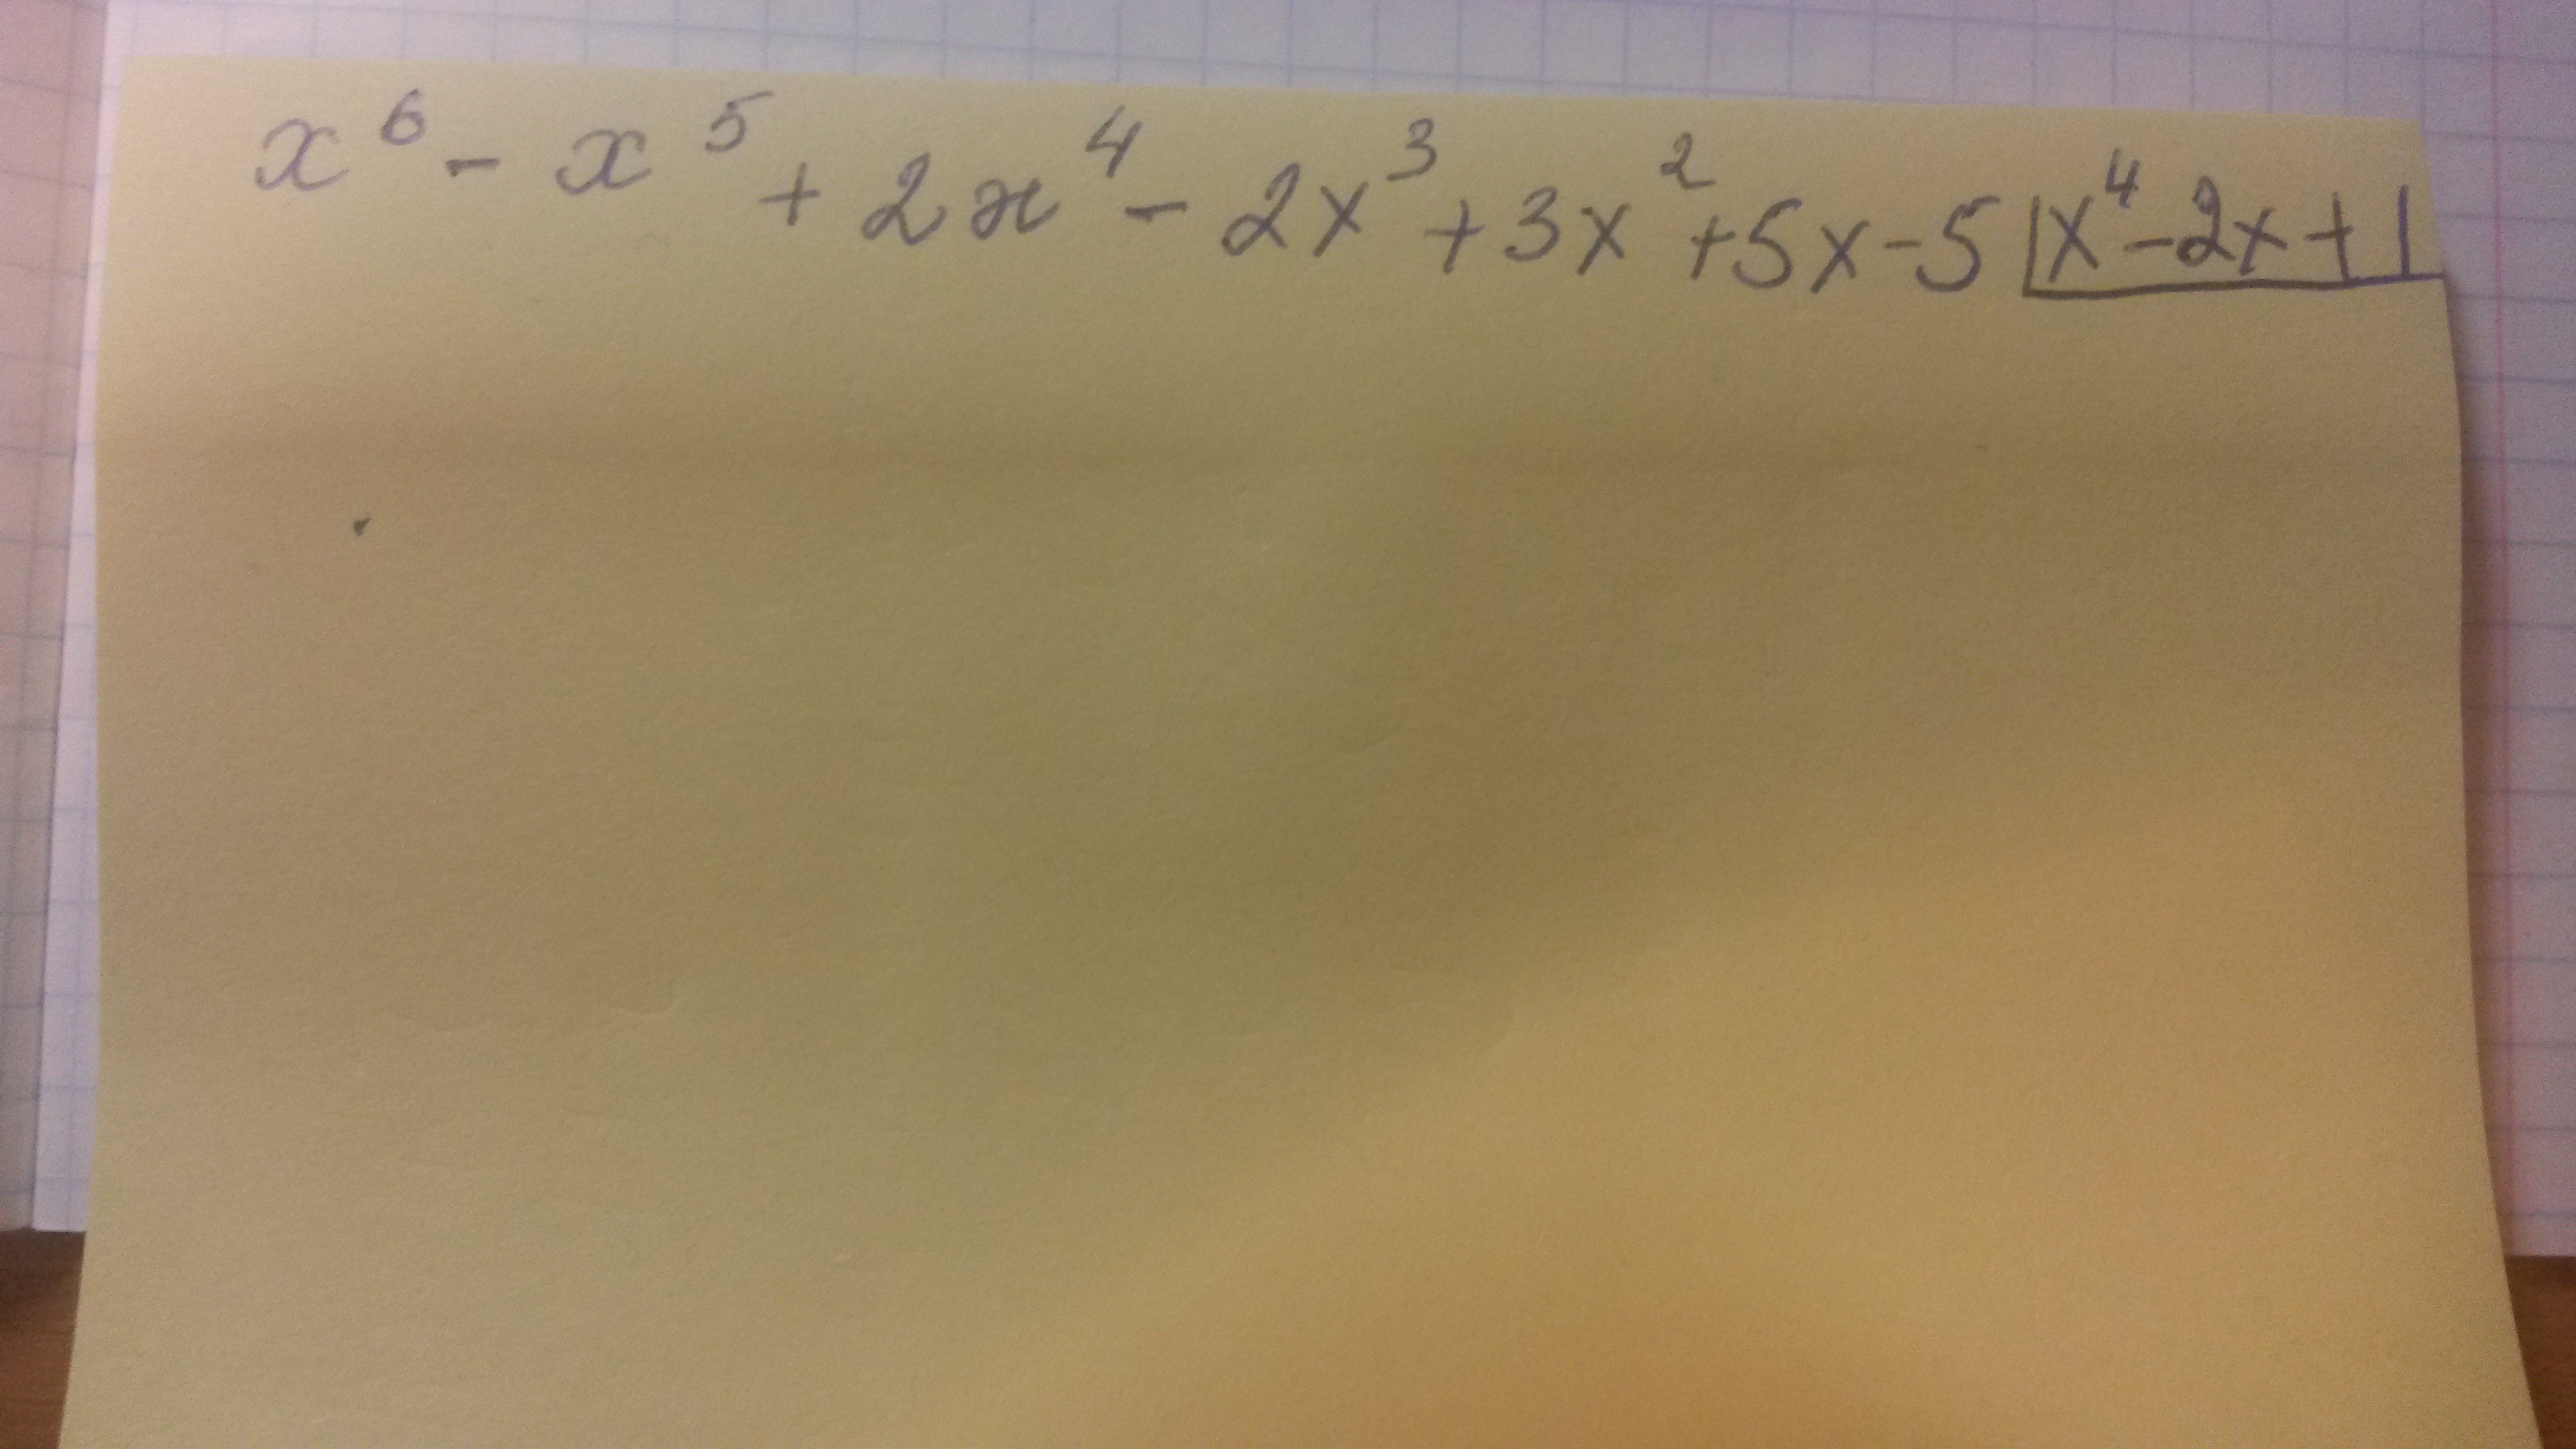 x⁶ - x⁵ + 2x⁴ - 2x³ + 3x² + 5x - 5 |x⁴ - 2x + 1